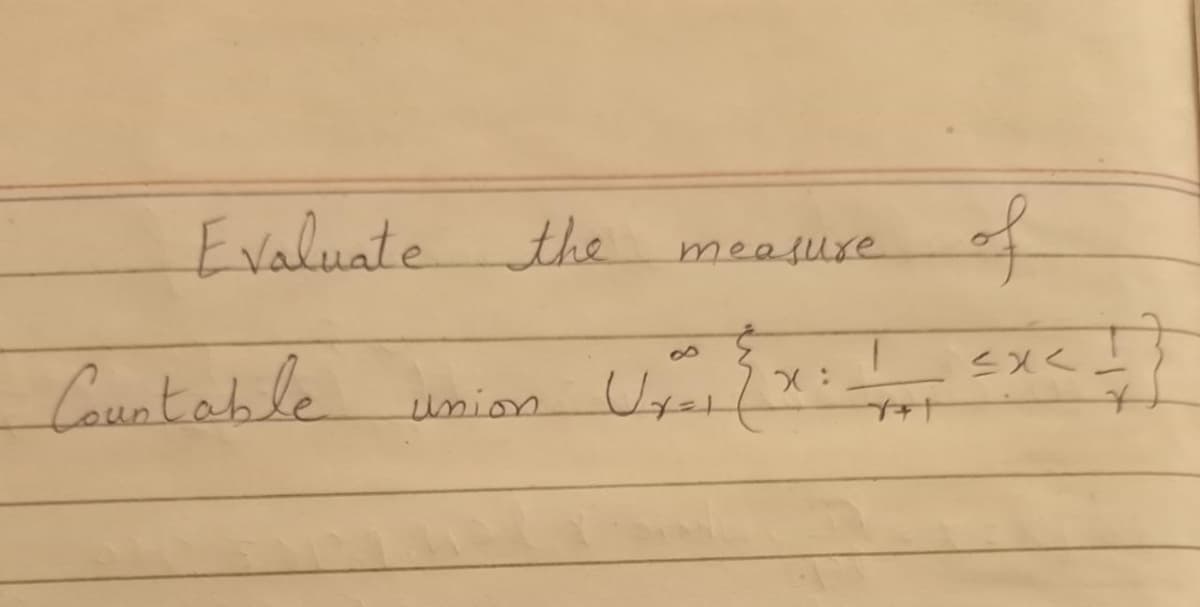 Evaluate the measure of
Countable union ∪_{r=1}^∞ {x : 1/(r+1) ≤ x < 1/r}